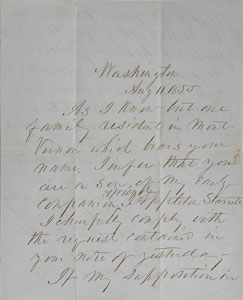 Washington
Aug 11 1855
As I know but one
family resident in Mont
Vernon which bears your
name, I infer that you
are a son of my early
companion Appleton Starrett
I cheerfully comply with
the request contained in
your note of yesterday—
If my supposition is